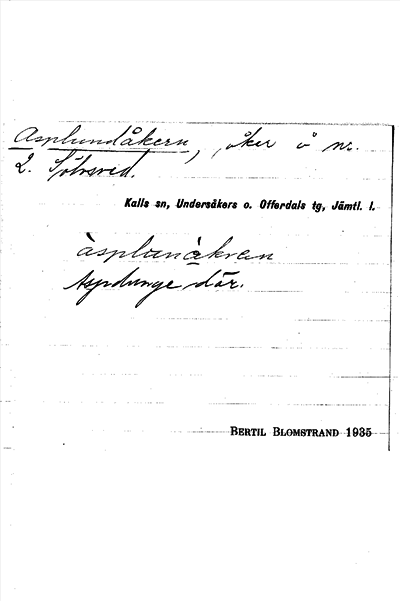 Asplundåkern, åker å nr.
2. Sölvsved.
Kalls sn, Undersåkers o. Offerdals tg, Jämtl. l.
àsplunàkren
Aspdunge där.
BERTIL BLOMSTRAND 1935